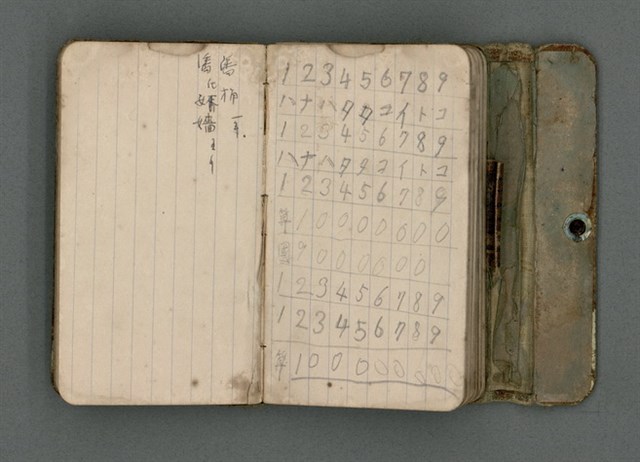 1 2 3 4 5 6 7 8 9
ハ ナ ハ タ タ コ イ ト コ
1 2 3 4 5 6 7 8 9
ハ ナ ハ タ タ コ イ ト コ
1 2 3 4 5 6 7 8 9
算 1 0 0 0 0 0 0 0
國 9 0 0 0 0 0 0
1 2 3 4 5 6 7 8 9
1 2 3 4 5 6 7 8 9
算 1 0 0 0 0 0 0 0 0